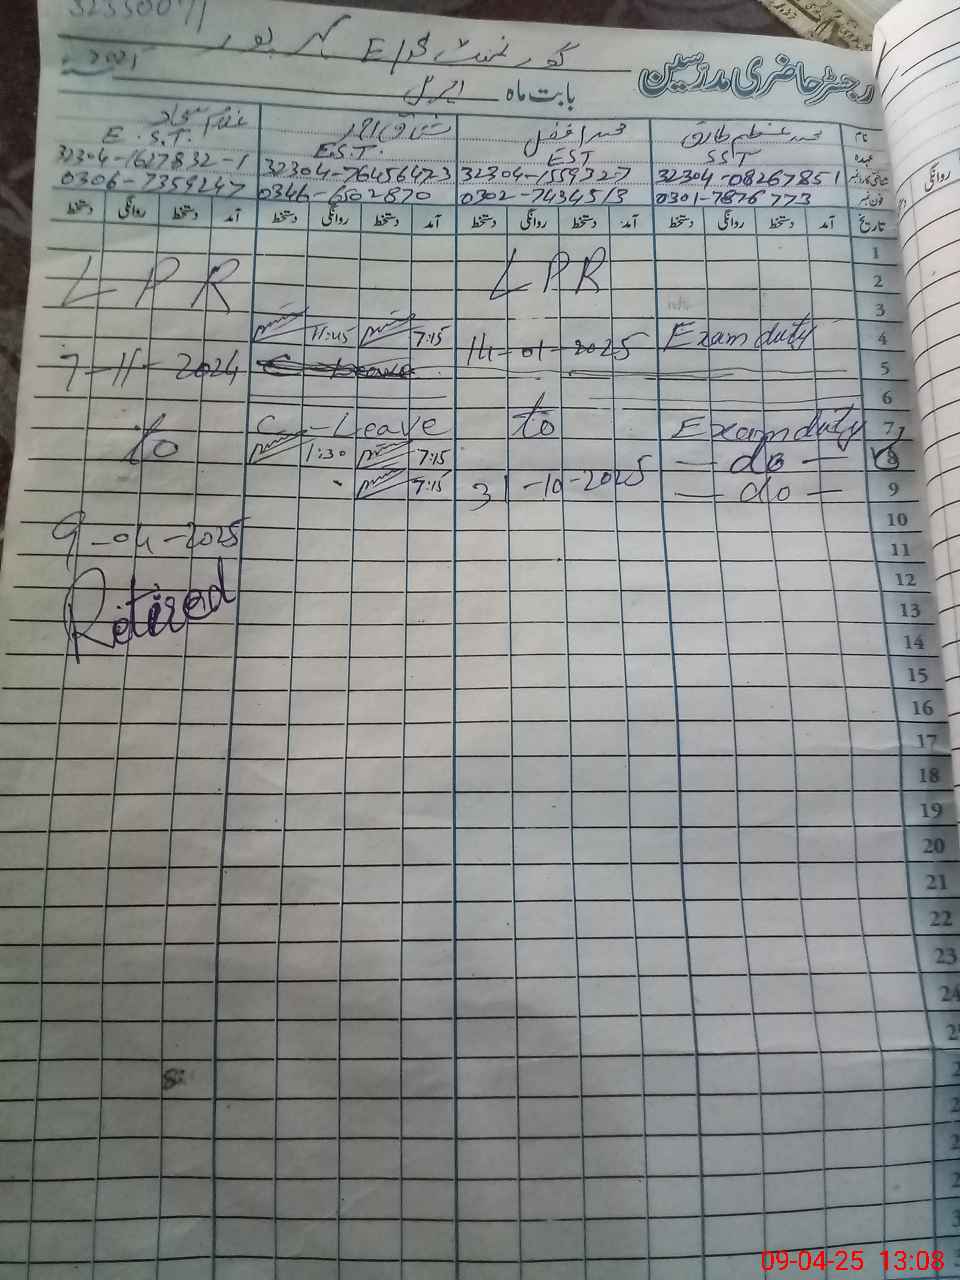 32330071
گورنمنٹ E/S پور
رجسٹر حاضری مدرسین
بابت ماہ اپریل 2025
نام محمد عظیم طارق محمد افضل غلام سجاد
عہدہ SST EST E.S.T. E.S.T.
شناختی کارڈ نمبر 32304-08267851 32304-1559327 32304-764564723 32304-1627832-1
فون نمبر 0301-7876773 0302-7434513 0346-6502870 0306-7359247
تاریخ آمد دستخط روانگی دستخط آمد دستخط روانگی دستخط آمد دستخط روانگی دستخط آمد دستخط روانگی دستخط
روانگی
1
2 LPR LPR
3
4 Exam duty 14-01-2025 7:15 11:45
5 7-11-2024
6
7 Exam duty to C-Leave
8 -do- 7:15 1:30 to
9 -do- 31-10-2025 7:15
10
11 9-04-2025
12
13 Retired
14
15
16
17
18
19
20
21
22
23
24
09-04-25 13:08